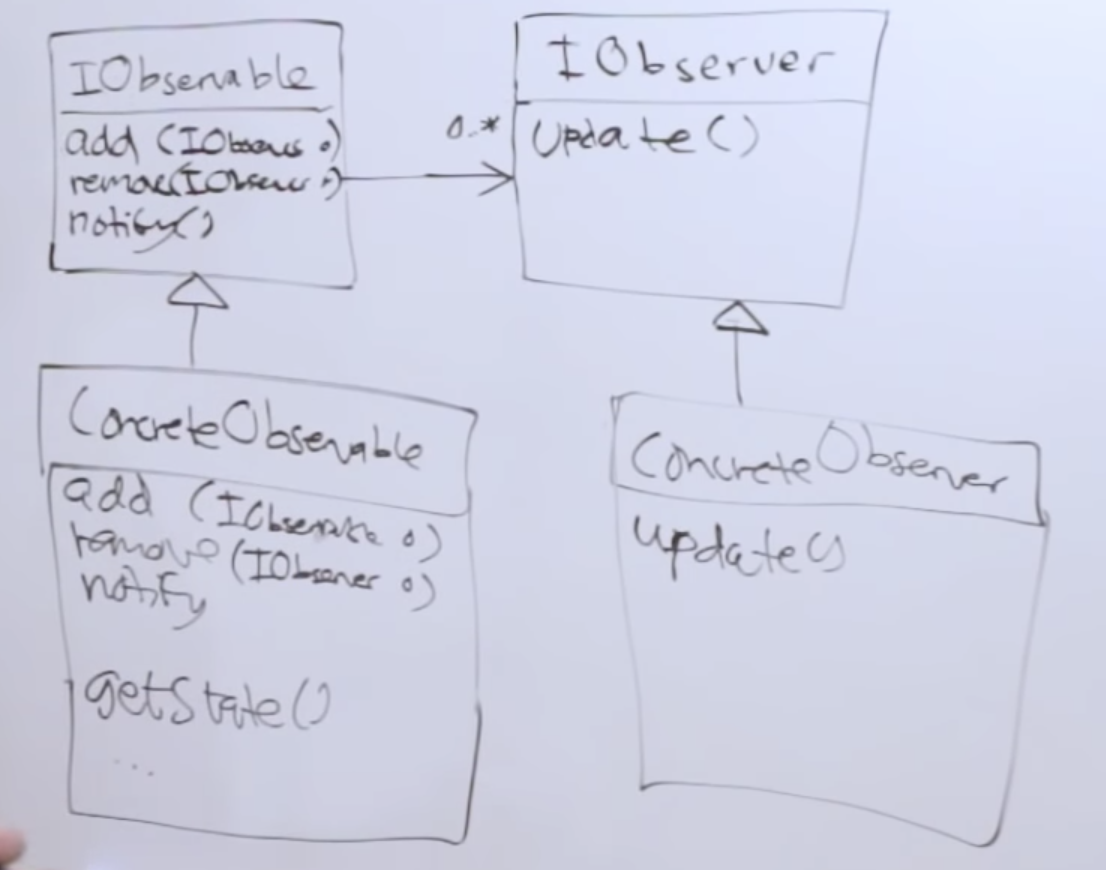 IObservable
add (IObserver o)
remove(IObserver o)
notify()
0..*
IObserver
Update()
ConcreteObservable
add (IObservable o)
remove (IObserver o)
notify
getState()
...
ConcreteObserver
update()